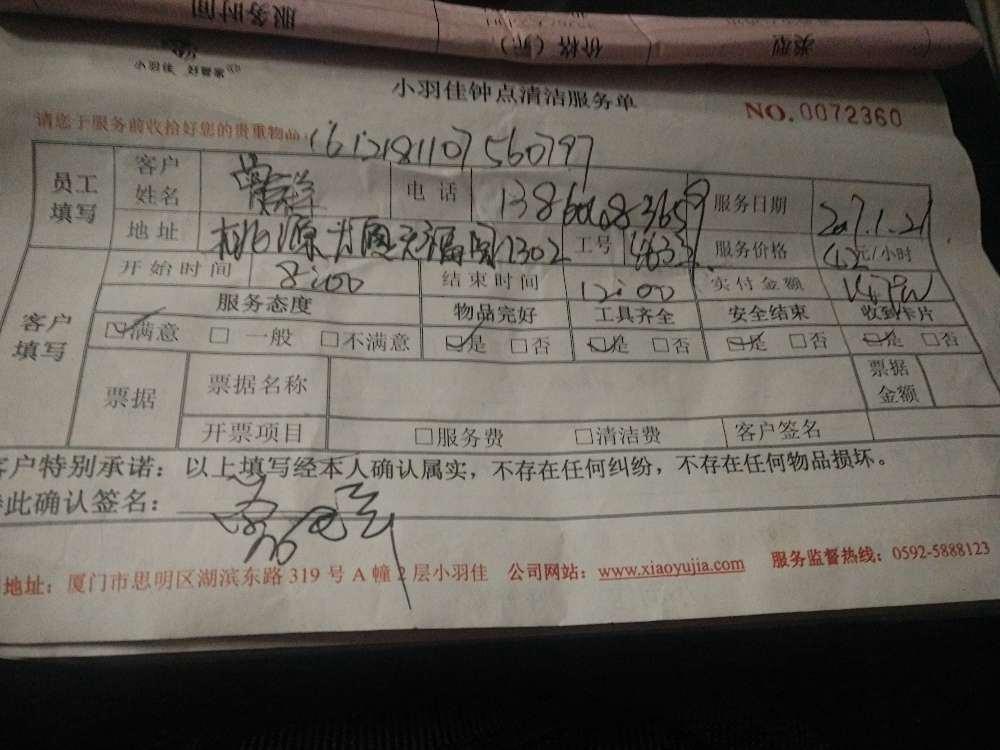 服务时间 价格（元） 类型
小羽佳 好管家
小羽佳钟点清洁服务单
NO.0072360
请您于服务前收拾好您的贵重物品。
1612181107560797
员工填写 客户姓名 电话 服务日期 2017.1.21
地址 1302 工号 服务价格 42元/小时
开始时间 8:00 结束时间 12:00 实付金额
客户填写 服务态度 物品完好 工具齐全 安全结束 收到卡片
☑满意 □一般 □不满意 ☑是 □否 ☑是 □否 ☑是 □否 ☑是 □否
票据 票据名称 票据金额
开票项目 □服务费 □清洁费 客户签名
客户特别承诺：以上填写经本人确认属实，不存在任何纠纷，不存在任何物品损坏。
此确认签名：
地址：厦门市思明区湖滨东路 319 号 A 幢 2 层小羽佳 公司网站：www.xiaoyujia.com 服务监督热线：0592-5888123